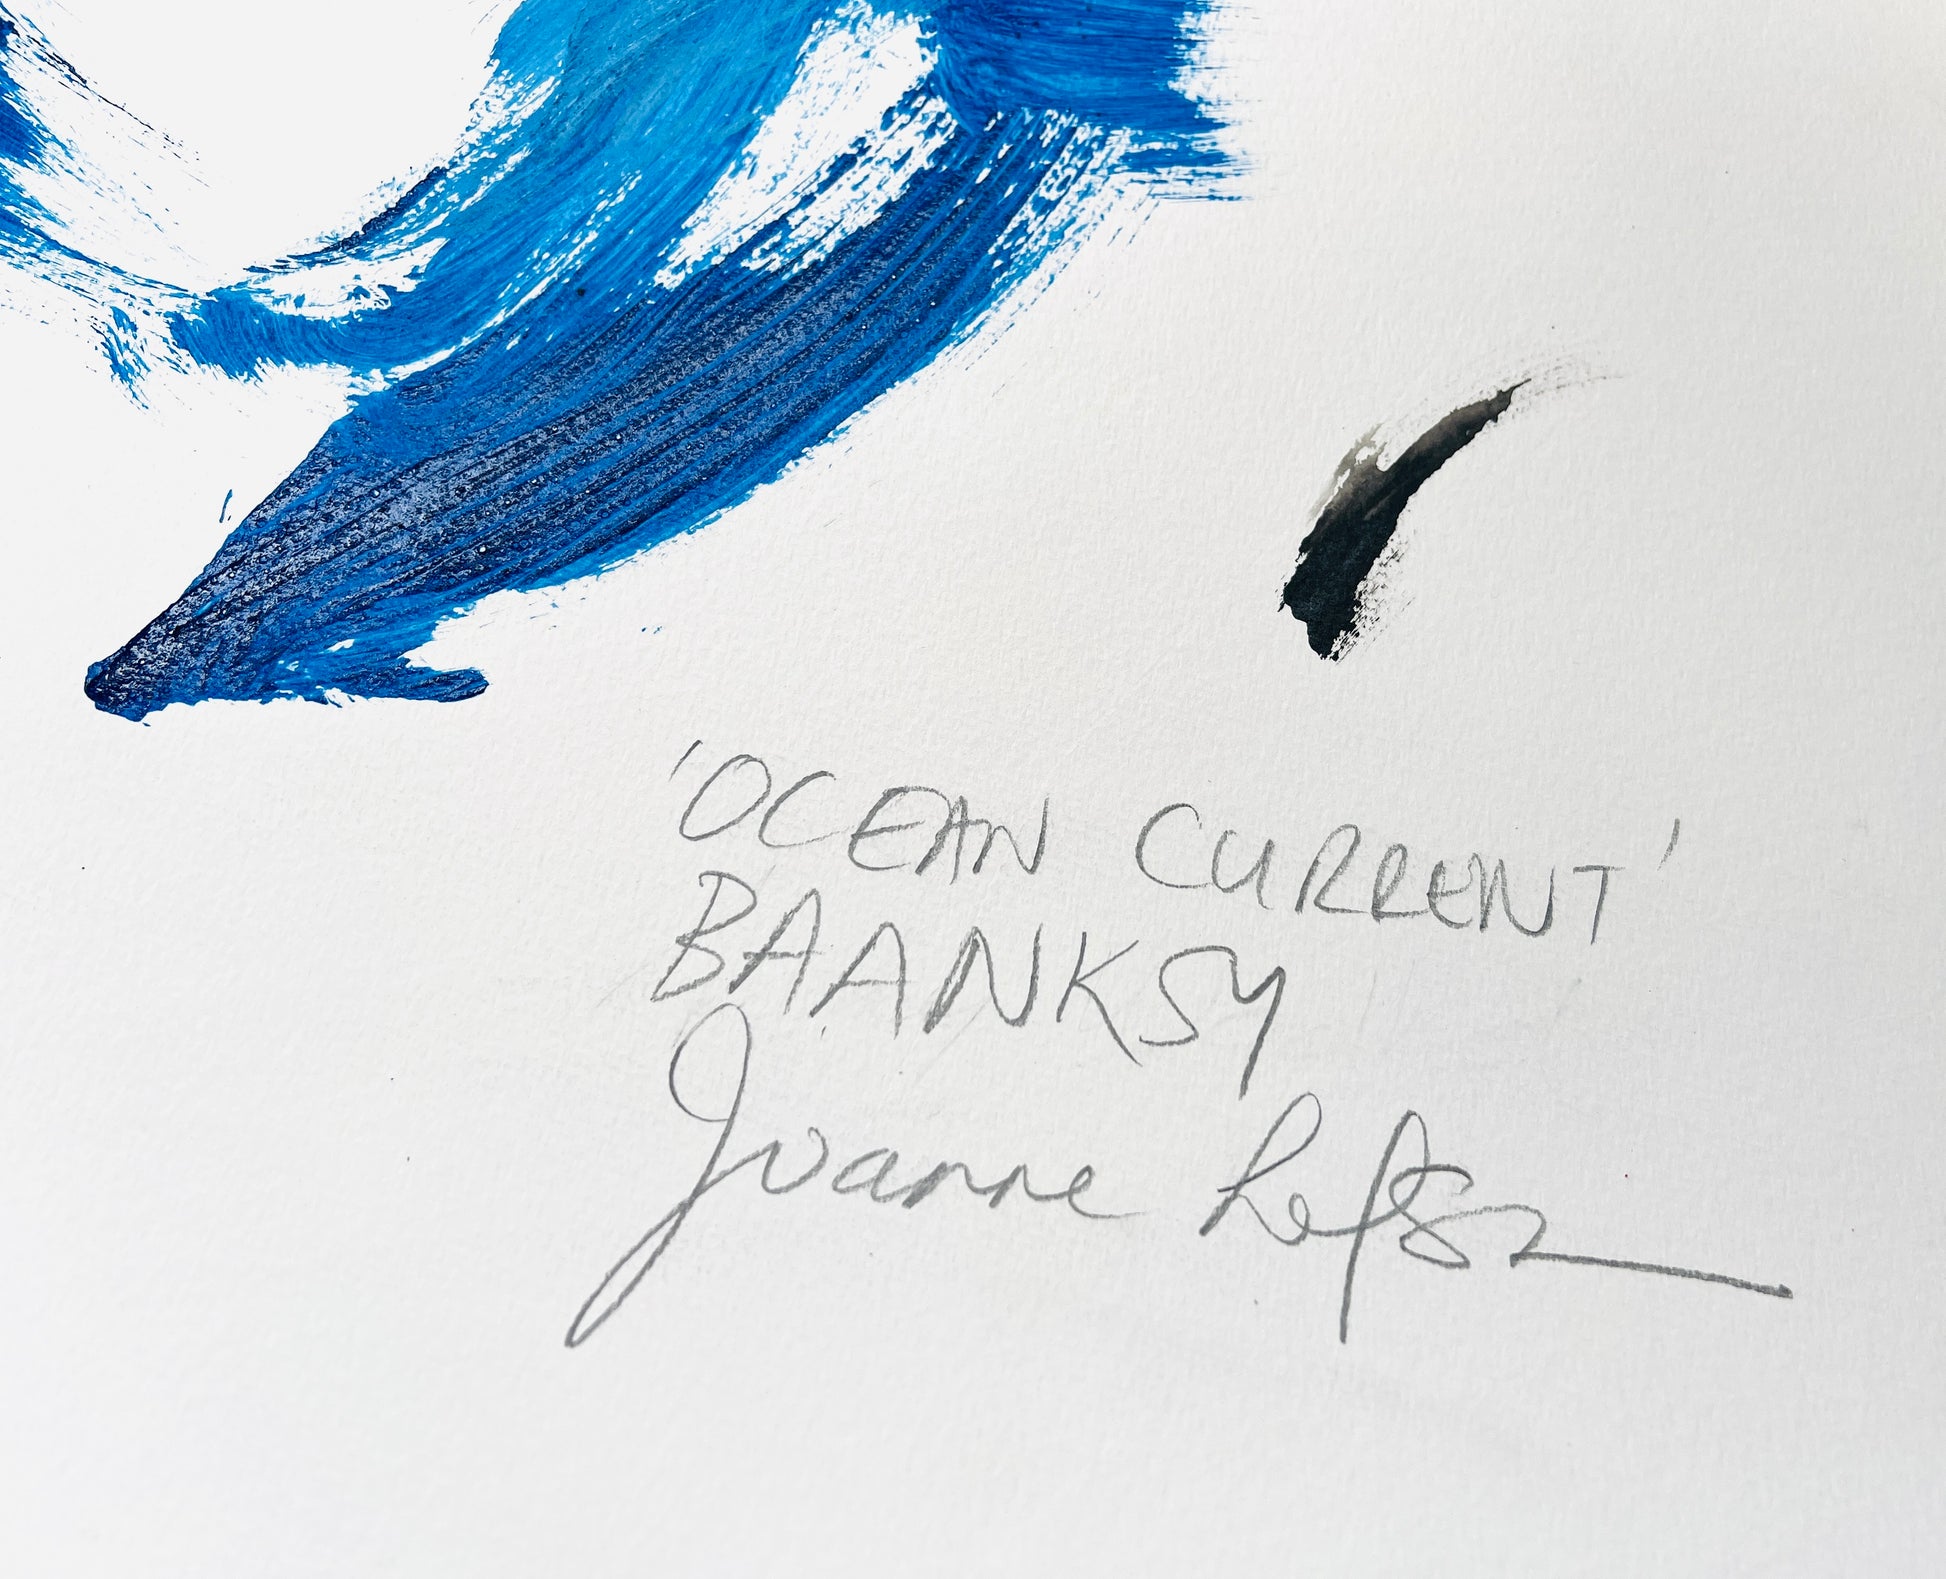 'OCEAN CURRENT'
BAANKSY
Joanne